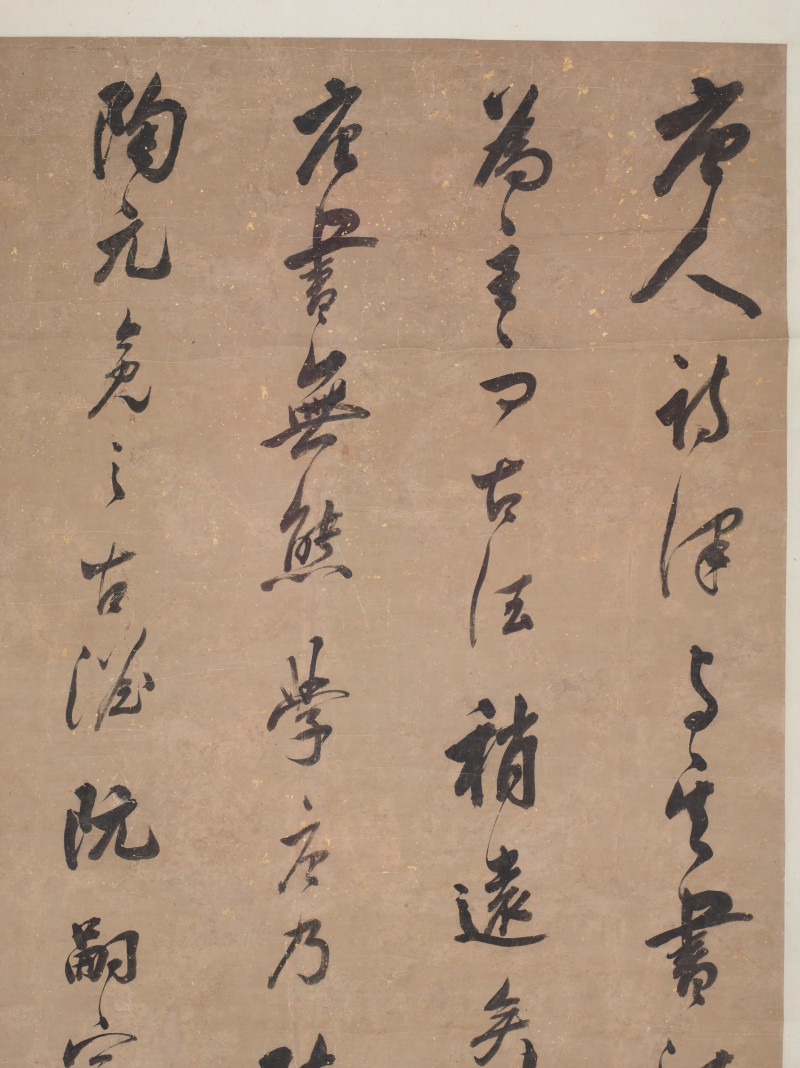 唐人詩律與其書法
為主而古法稍遠矣
唐書無態學唐乃
陶元亮之古澹阮嗣宗